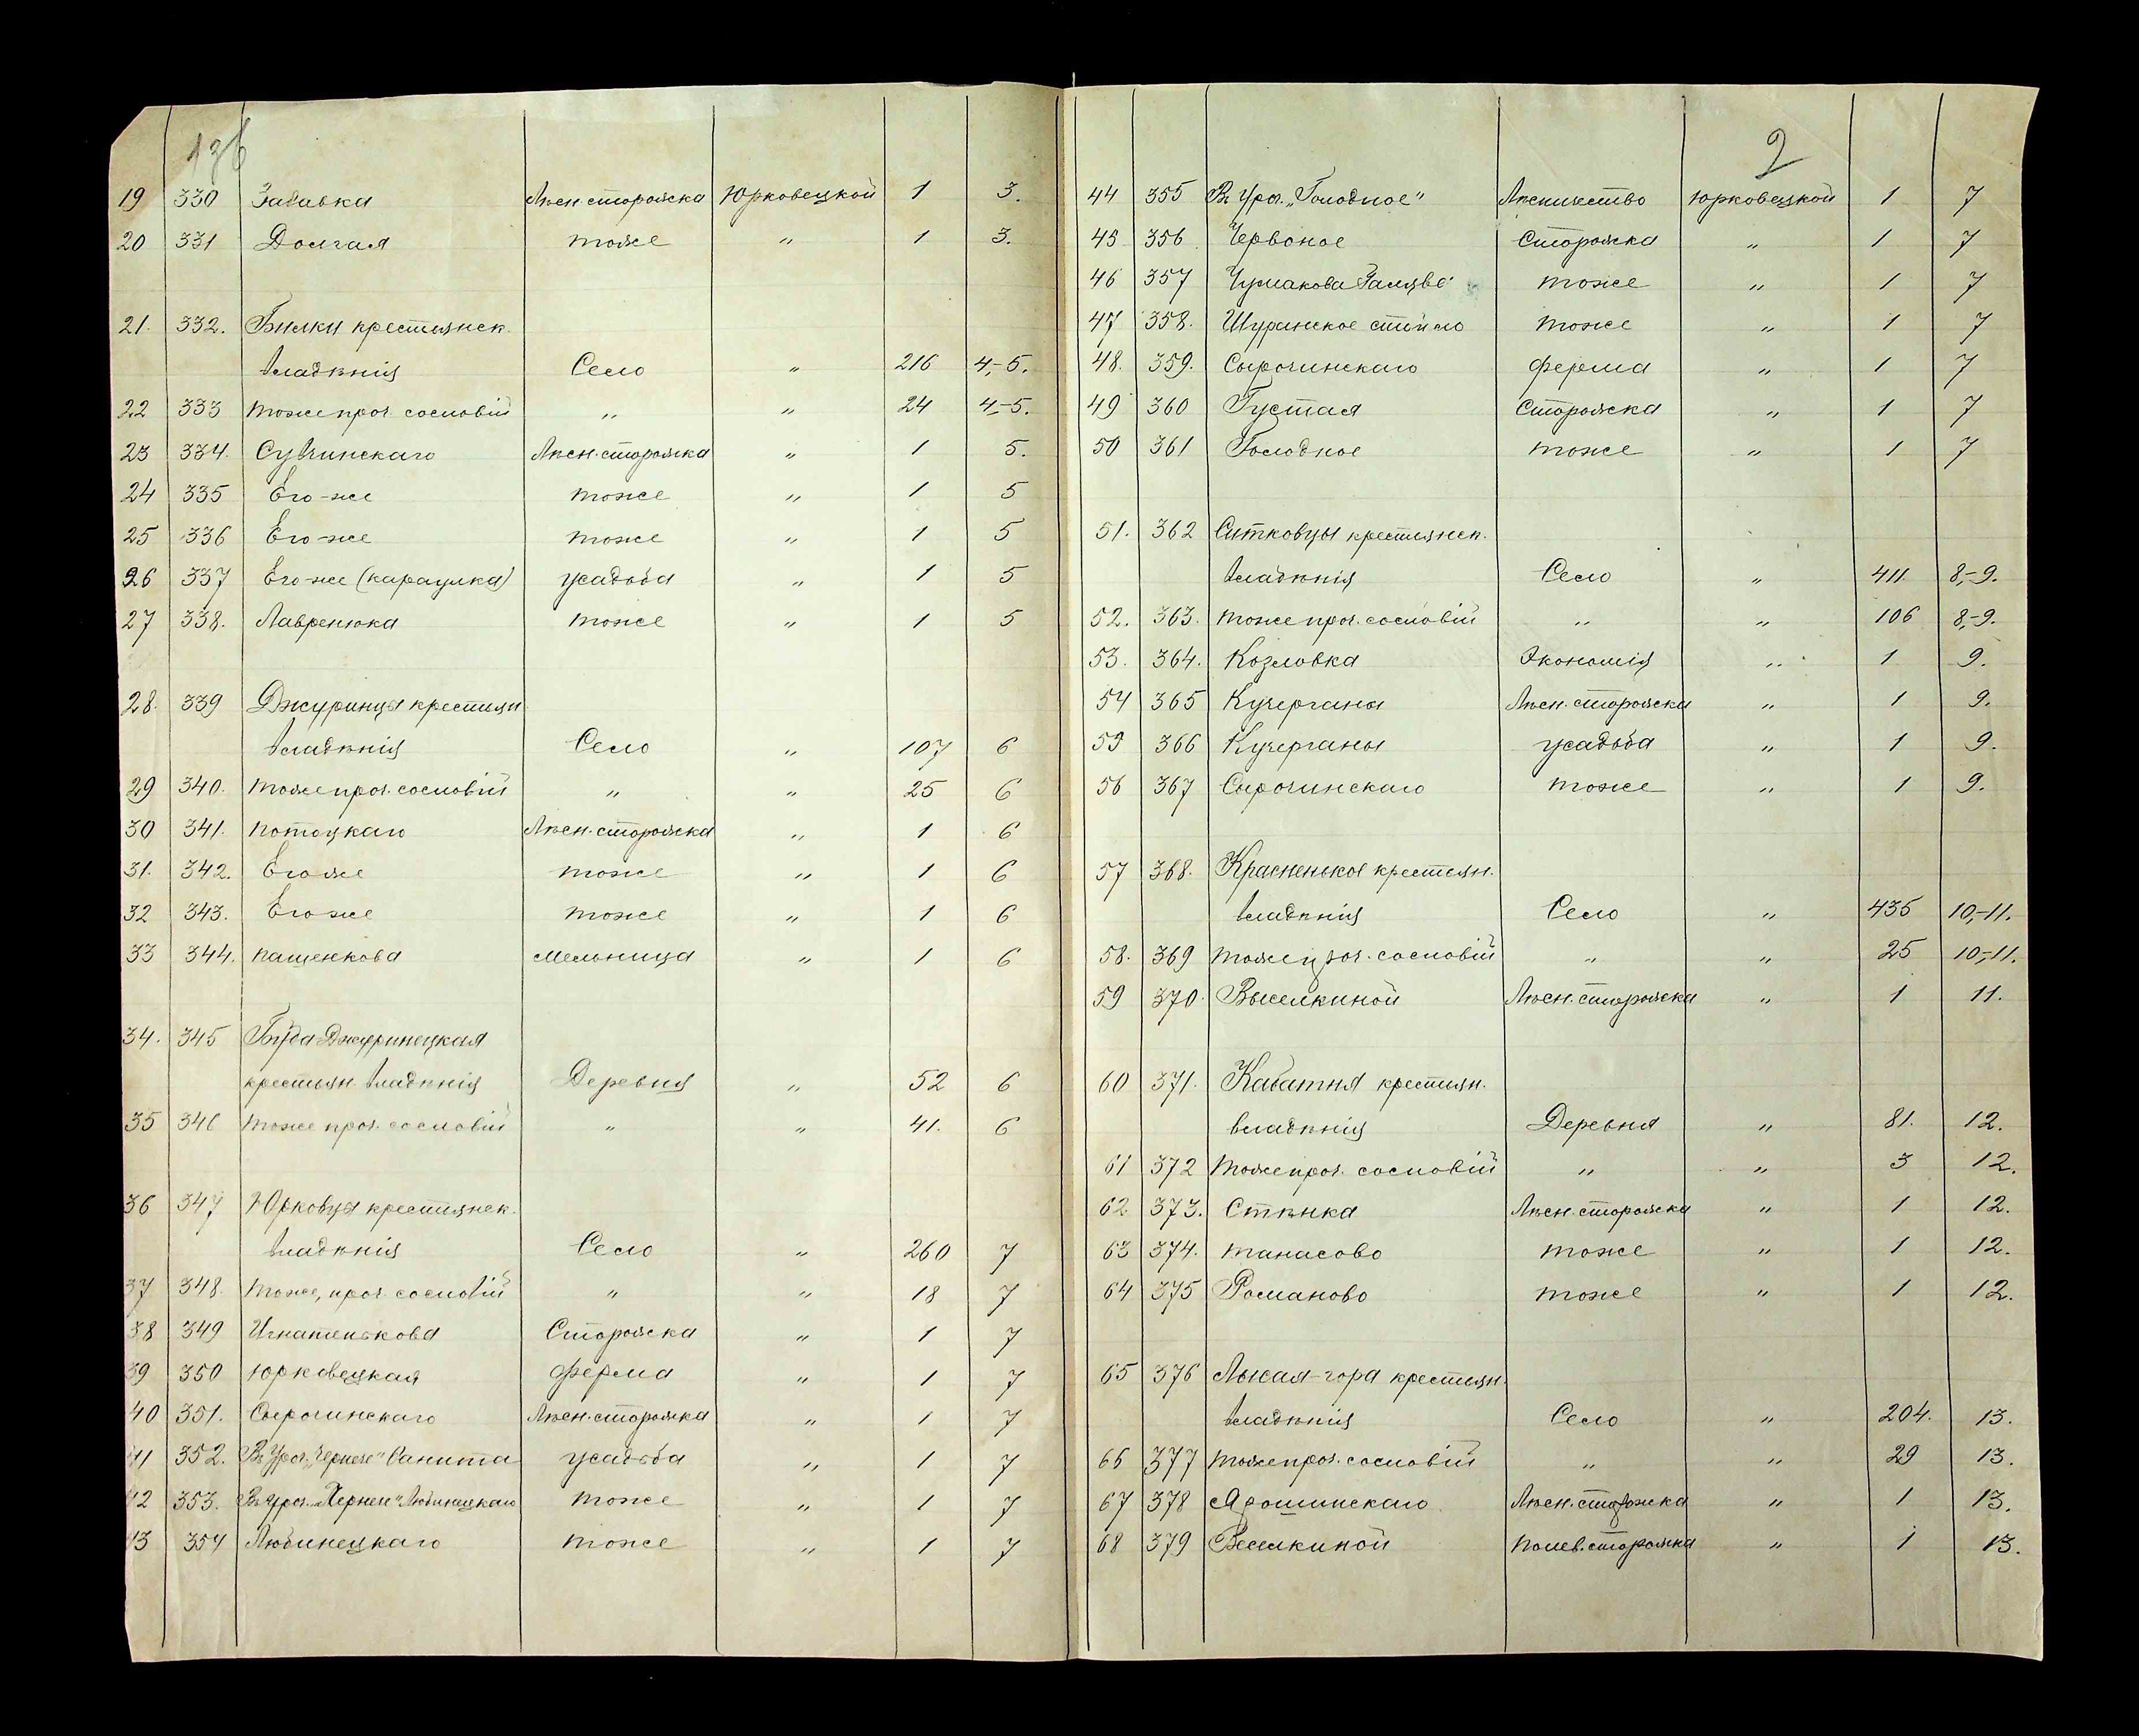 136
19 330 Забавка Лѣсн. сторожка Юрковецкой 1 3.
20 331 Долгая тоже " 1 3.
21. 332. Билки крестьянск.
владѣнія Село " 216 4,-5.
22 333 тоже проч. сословій " " 24 4,-5.
23 334. Сувчинскаго Лѣсн. сторожка " 1 5.
24 335 Его-же тоже " 1 5
25 336 Его-же тоже " 1 5
26 337 Его-же (караулка) усадьба " 1 5
27 338. Лавренюка тоже " 1 5
28. 339 Джуринцы крестьян
владѣнія Село " 107 6
29 340. тоже проч. сословій " " 25 6
30 341. Потоцкаго Лѣсн. сторожка " 1 6
31. 342. Егоже тоже " 1 6
32 343. Егоже тоже " 1 6
33 344. Пащенкова Мельница " 1 6
34. 345 Буда Джуринецкая
крестьян. владѣнія Деревня " 52 6
35 346 тоже проч. сословій " " 41. 6
36 347 Юрковцы крестьянск.
владѣнія Село " 260 7
37 348. тоже, проч. сословій " " 18 7
38 349 Игнатенкова Сторожка " 1 7
39 350 Юрковецкая ферма " 1 7
40 351. Сырочинскаго Лѣсн. сторожка " 1 7
41 352. Въ Уроч. „Чернече" усадьба " 1 7
42 353. Въ уроч. „Чернече" Любинецкаго тоже " 1 7
43 354 Любинецкаго тоже " 1 7
2
44 355 Въ Уроч. „Голодное" Лѣсничество Юрковецкой 1 7
45 356 Червоное Сторожка " 1 7
46 357 Чумакова тоже " 1 7
47 358. Шуринское стійло тоже " 1 7
48. 359. Сырочинскаго ферма " 1 7
49 360 Густая Сторожка " 1 7
50 361 Голодное тоже " 1 7
51. 362 Ситковцы крестьянск.
владѣнія Село " 411. 8,-9.
52. 363. тоже проч. сословій " " 106 8,-9.
53. 364. Козловка Экономія " 1 9.
54 365 Кучерганы Лѣсн. сторожка " 1 9.
55 366 Кучерганы усадьба " 1 9.
56 367 Сырочинскаго тоже " 1 9.
57 368. Красненькое крестьян.
владѣнія Село " 435 10,-11.
58. 369 тоже проч. сословій " " 25 10,-11.
59 370. Веселкиной Лѣсн. сторожка " 1 11.
60 371. Кабатня крестьян.
владѣнія Деревня " 81. 12.
61 372 тоже проч. сословій " " 3 12.
62 373. Стѣнка Лѣсн. сторожка " 1 12.
63 374. Танасово тоже " 1 12.
64 375 Романово тоже " 1 12.
65 376 Лысая-гора крестьян.
владѣнія Село " 204. 13.
66 377 тоже проч. сословій " " 29 13.
67 378 Ярошинскаго Лѣсн. сторожка " 1 13.
68 379 Веселкиной Полев. сторожка " 1 13.